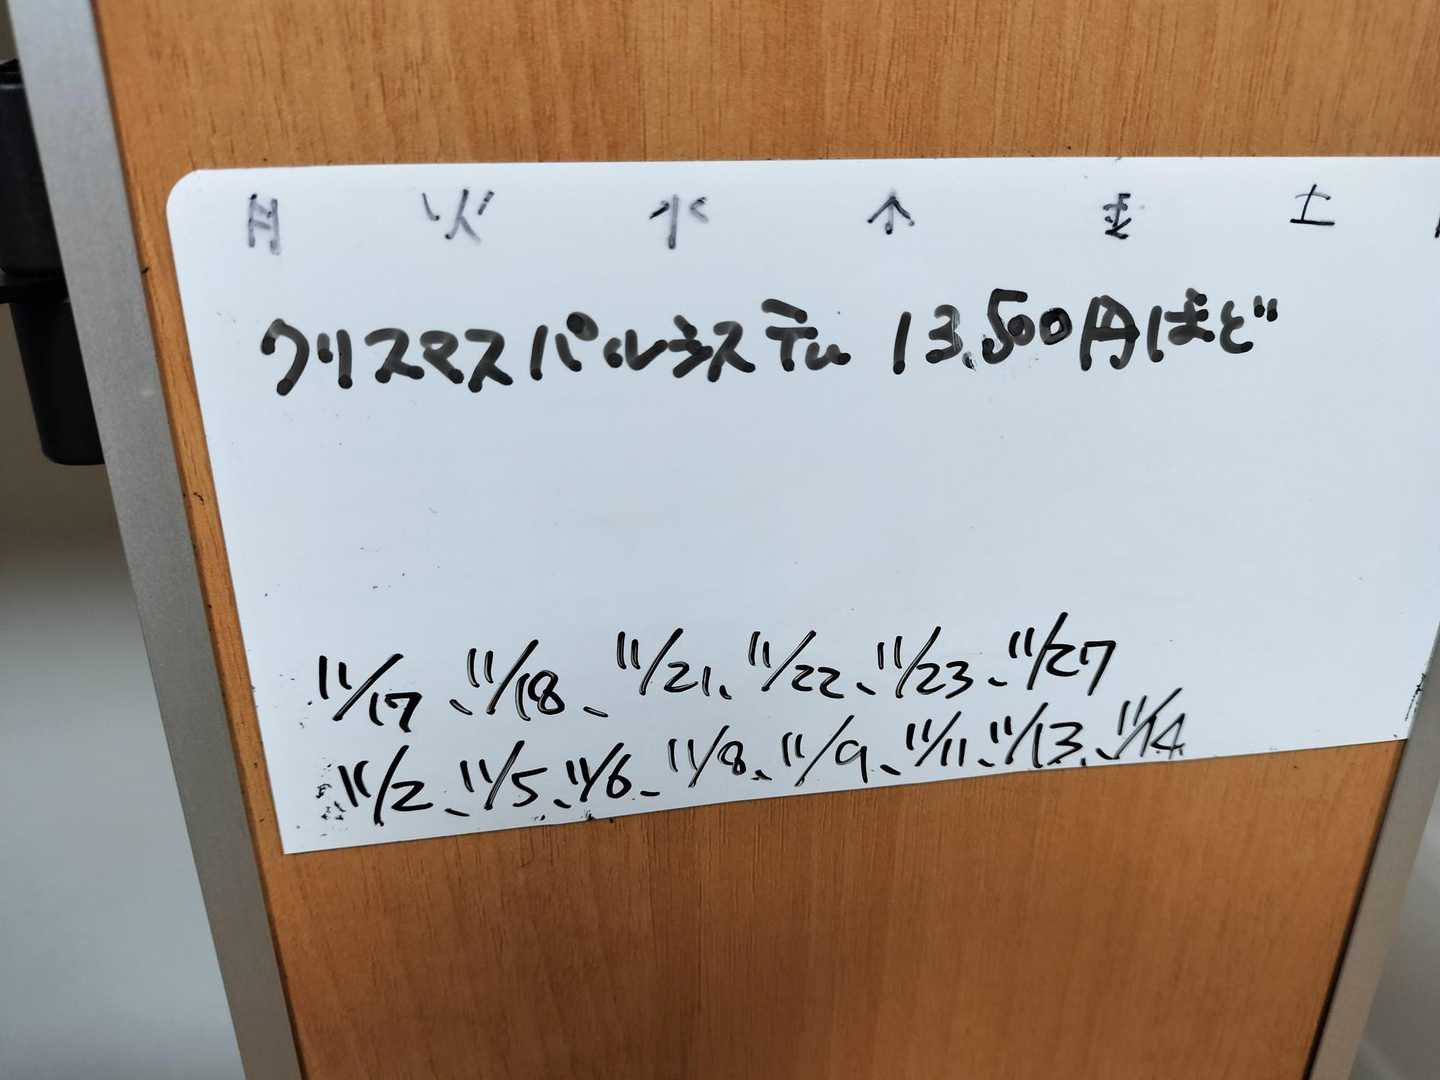 月 火 水 木 金 土
クリスマスパルシステム 13,500円ほど
11/17、11/18、11/21、11/22、11/23、11/27
11/2、11/5、11/6、11/8、11/9、11/11、11/13、11/14